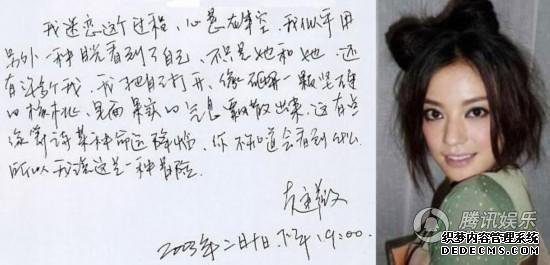 我迷恋这个过程，心悬在半空。我似乎用
另外一种眼光看到了自己，不只是她和她，还
有许多我。我把自己打开，像砸开一颗坚硬
的核桃，里面果实的气息飘散出来。这有点
像等待某种命运降临，你不知道会看到什么
所以我说这是一种冒险.
2003年二月十日.下午19:00.
腾讯娱乐
织梦内容管理系统
DEDECMS.COM